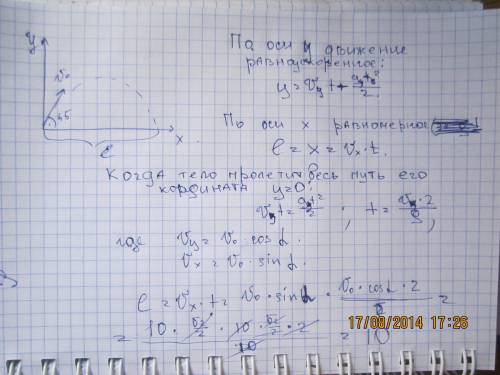 y
v₀
45
x
ℓ
По оси y движение
равноускоренное:
y = v_y t + g_y t²/2
По оси x равномерное
ℓ = x = v_x · t.
Когда тело пролетит весь путь его
кордината y=0:
v_y t = g t²/2 ; t = v_y · 2/g ,
где v_y = v₀ · cos α.
v_x = v₀ · sin α.
ℓ = v_x · t = v₀ · sin α · v₀ · cos α · 2/g =
= 10 · √2/2 · 10 · √2/2 · 2/10 = 10
17/09/2014 17:26